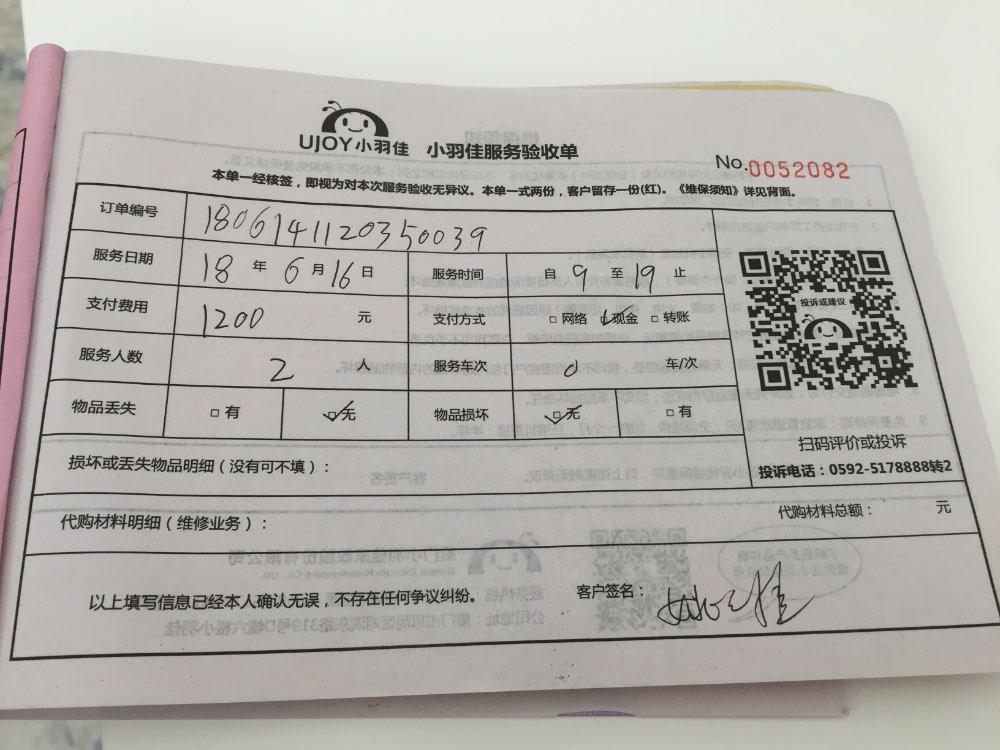 UJOY小羽佳 小羽佳服务验收单
No.0052082
本单一经核签，即视为对本次服务验收无异议。本单一式两份，客户留存一份(红)。《维保须知》详见背面。
订单编号 1806141120350039
服务日期 18 年 6 月 16 日 服务时间 自 9 至 19 止
支付费用 1200 元 支付方式 □ 网络 ☑ 现金 □ 转账
服务人数 2 人 服务车次 0 车/次
物品丢失 □ 有 ☑ 无 物品损坏 ☑ 无 □ 有
投诉或建议
扫码评价或投诉
投诉电话：0592-5178888转2
损坏或丢失物品明细（没有可不填）：
代购材料明细（维修业务）： 代购材料总额： 元
以上填写信息已经本人确认无误，不存在任何争议纠纷。 客户签名：